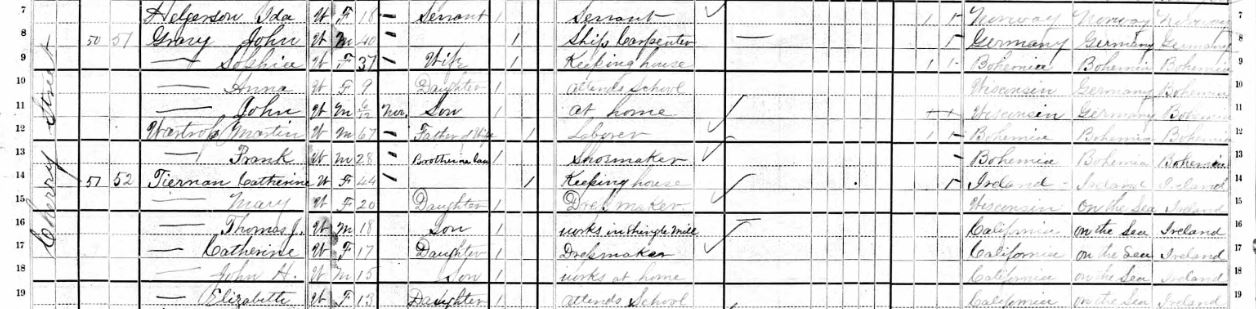 7 Helgerson Ida W F 18 — Servant 1 Servant 1 1 Norway Norway Norway
8 50 51 Gravy John W M 40 — 1 Ship Carpenter — 1 Germany Germany Germany
9 — Sophia W F 37 — Wife 1 Keeping house 1 1 Bohemia Bohemia Bohemia 9
10 — Anna W F 9 Daughter 1 attends School Wisconsin Germany Bohemia 10
11 — John W M 6/12 Nov. Son 1 at home Wisconsin Germany Bohemia 11
12 Martin W M 67 — Father of Wife 1 Laborer 1 1 Bohemia Bohemia Bohemia 12
13 — Frank W M 28 — Brother in law 1 Shoemaker Bohemia Bohemia Bohemia 13
14 51 52 Tiernan Catherine W F 44 — 1 Keeping house 1 Ireland Ireland Ireland 14
15 — Mary W F 20 Daughter 1 Dressmaker Wisconsin on the Sea Ireland 15
16 — Thomas J. W M 18 Son 1 works in Shingle Mill California on the Sea Ireland 16
17 — Catherine W F 17 Daughter 1 Dressmaker California on the Sea Ireland 17
18 — John H. W M 15 Son 1 works at home California on the Sea Ireland 18
19 — Elizabeth W F 13 Daughter 1 attends School California on the Sea Ireland 19
Cherry Street